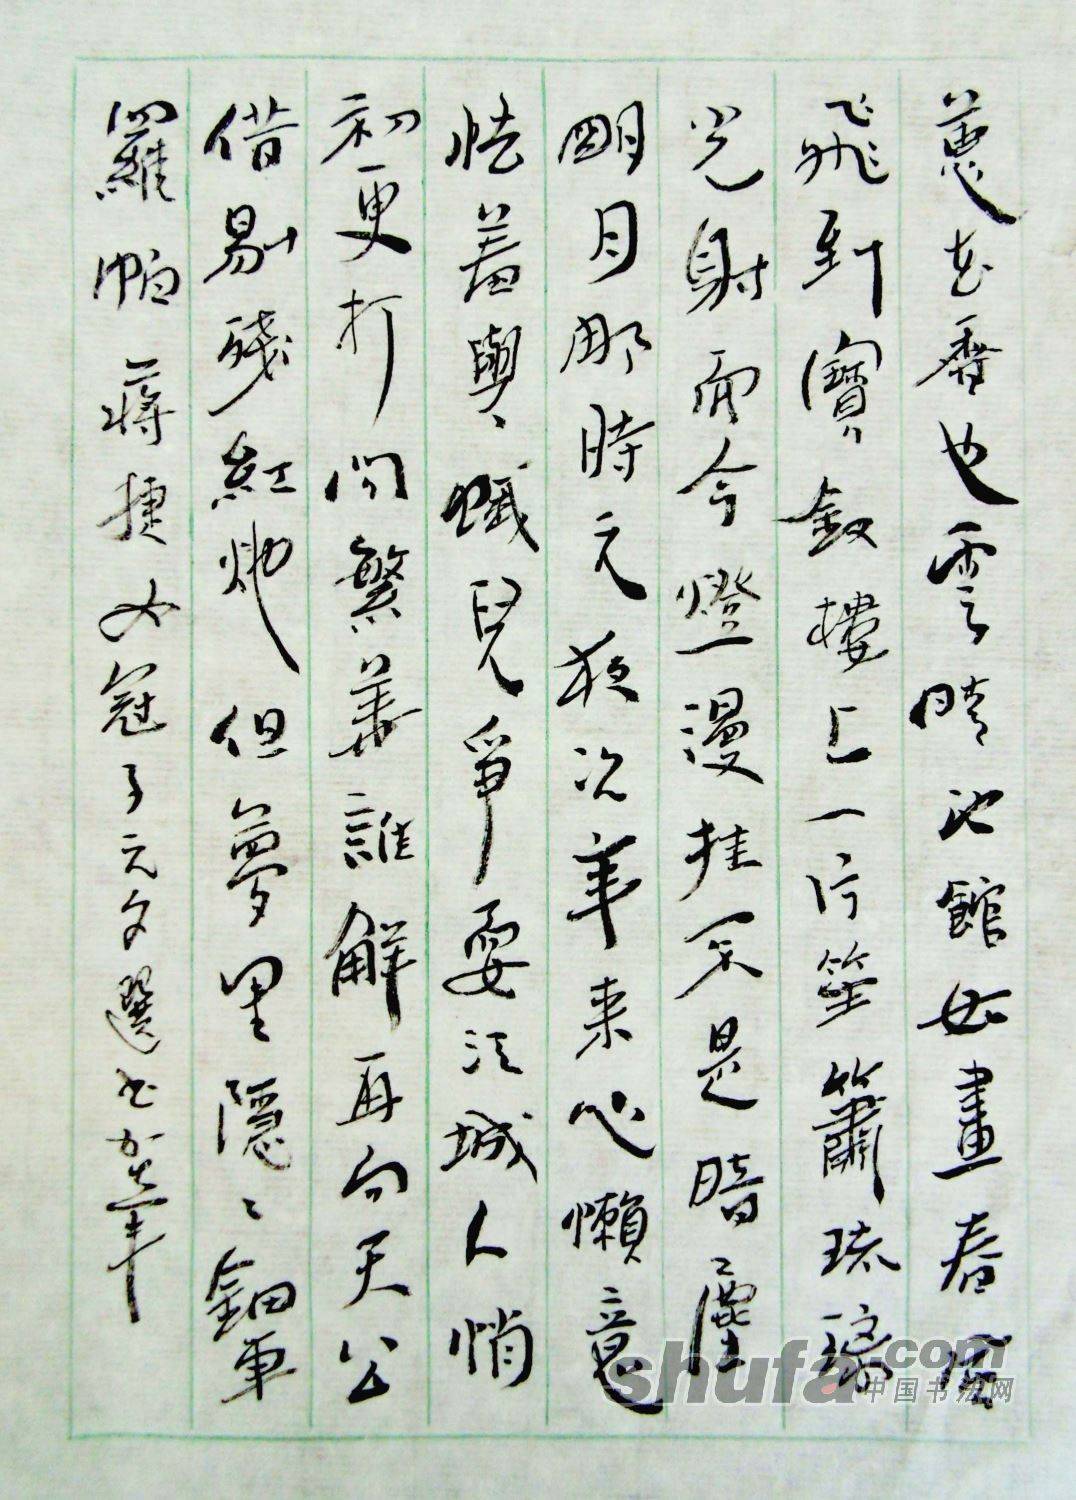 蕙花香也雪晴池館如畫春風
飛到寶釵樓上一片笙簫琉璃
光射而今燈漫挂不是暗塵
明月那時元夜況年来心懶意
怯羞與蛾兒爭耍江城人悄
初更打問繁華誰解再向天公
借剔残紅灺但夢里隱〻鈿車
羅帕 蔣捷女冠子元夕選书
shufa.com
中国书法网